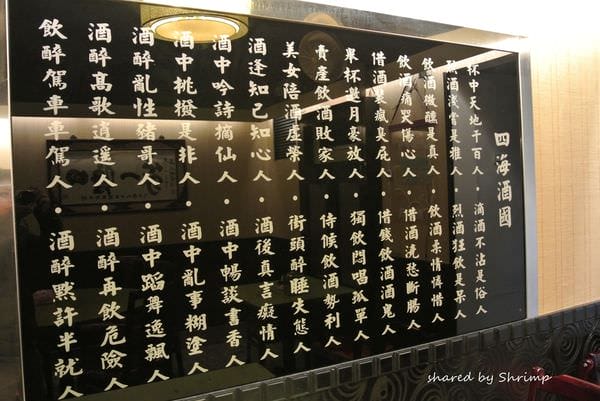 四海酒國
杯中天地千百人・滴酒不沾是俗人
烈酒淺嘗是雅人・烈酒狂飲是呆人
飲酒微醺是真人・飲酒柔情憐惜人
飲酒痛哭傷心人・借酒澆愁斷腸人
借酒裝瘋臭屁人・借錢飲酒酒鬼人
舉杯邀月豪放人・獨飲悶唱孤單人
賣產飲酒敗家人・侍候飲酒勢利人
美女陪酒虛榮人・街頭醉睡失態人
酒逢知己知心人・酒後真言癡情人
酒中吟詩摘仙人・酒中暢談書香人
酒中挑撥是非人・酒中亂事糊塗人
酒醉亂性豬哥人・酒中蹈舞逸飄人
酒醉高歌逍遙人・酒醉再飲危險人
飲醉駕車車駕人・酒醉默許半就人
shared by Shrimp